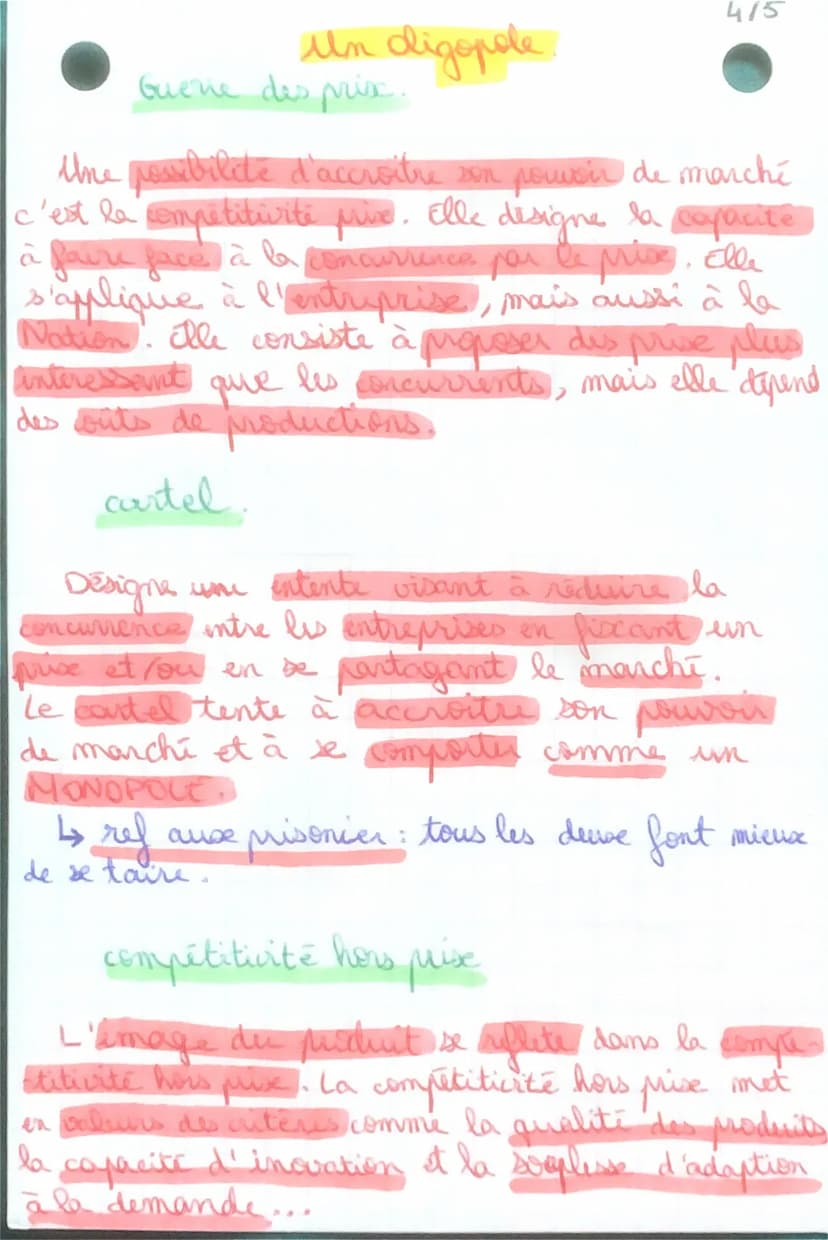 4/5
Un oligopole.
Guerre des prix.
Une possibilité d'accroître son pouvoir de marché
c'est la compétitivité prix. Elle désigne la capacité
à faire face à la concurrence par le prix. Elle
s'applique à l'entreprise, mais aussi à la
Nation. Elle consiste à proposer des prix plus
intéressant que les concurrents, mais elle dépend
des coûts de productions.
cartel.
Désigne une entente visant à réduire la
concurrence entre les entreprises en fixant un
prix et/ou en se partagant le marché.
Le cartel tente à accroître son pouvoir
de marché et à se comporter comme un
MONOPOLE.
↳ ref aux prisonier : tous les deux font mieux
de se taire.
compétitivité hors prix
L'image du produit se reflète dans la compé-
-titivité hors prix. La compétitivité hors prix met
en valeurs des critères comme la qualité des produits
la capacité d'inovation et la souplesse d'adaption
à la demande...